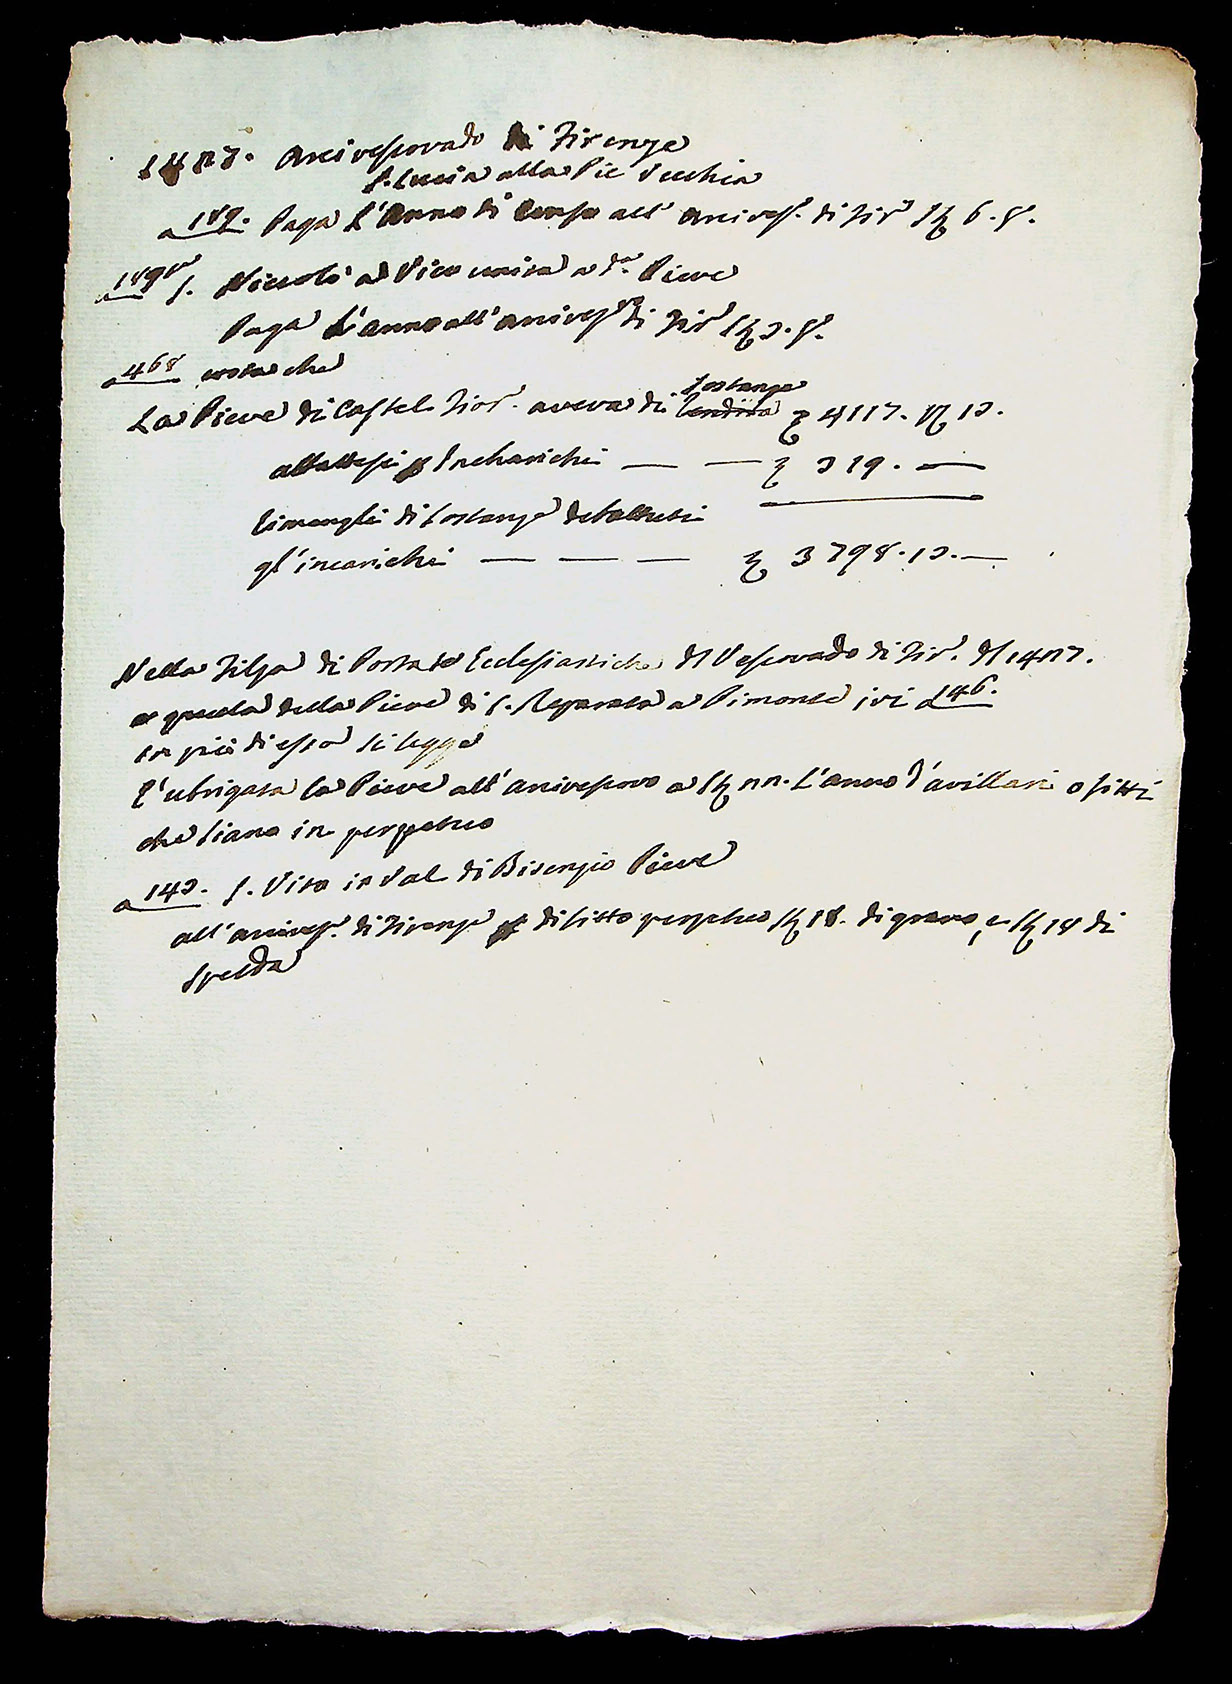 Arcivescovado di Firenze
S. Lucia alla Pie Vecchia
a 189. Paga l'Anno di Censo all' Arcives.º di Fir.e 6. 8.
S. Niccolò a Vico unita a d.a Pieve
Paga l'anno all' Arcives.vo di Fir.e
a 468 nota che
La Pieve di Castel Fior.o aveva di Rendita Sostanze 4117.
all'attesi p Incharichi — — 319. —
Rimangli di sostanze debattuti
gl'incarichi — — — 3798. —
Nella Filza di Portate Ecclesiastiche del Vescovado di Fir.e del
a quella della Pieve di S. Reparata a Pimonte ivi a 146.
in piè di essa si legge
E' ubrigata la Pieve all' Arcivescovo a l'anno d'avillari o fitti
che siano in perpetuo
S. Vito in Val di Bisenzio Pieve
all' Arcives.º di Firenze p di fitto perpetuo 18. di grano, e 18 di
spelda